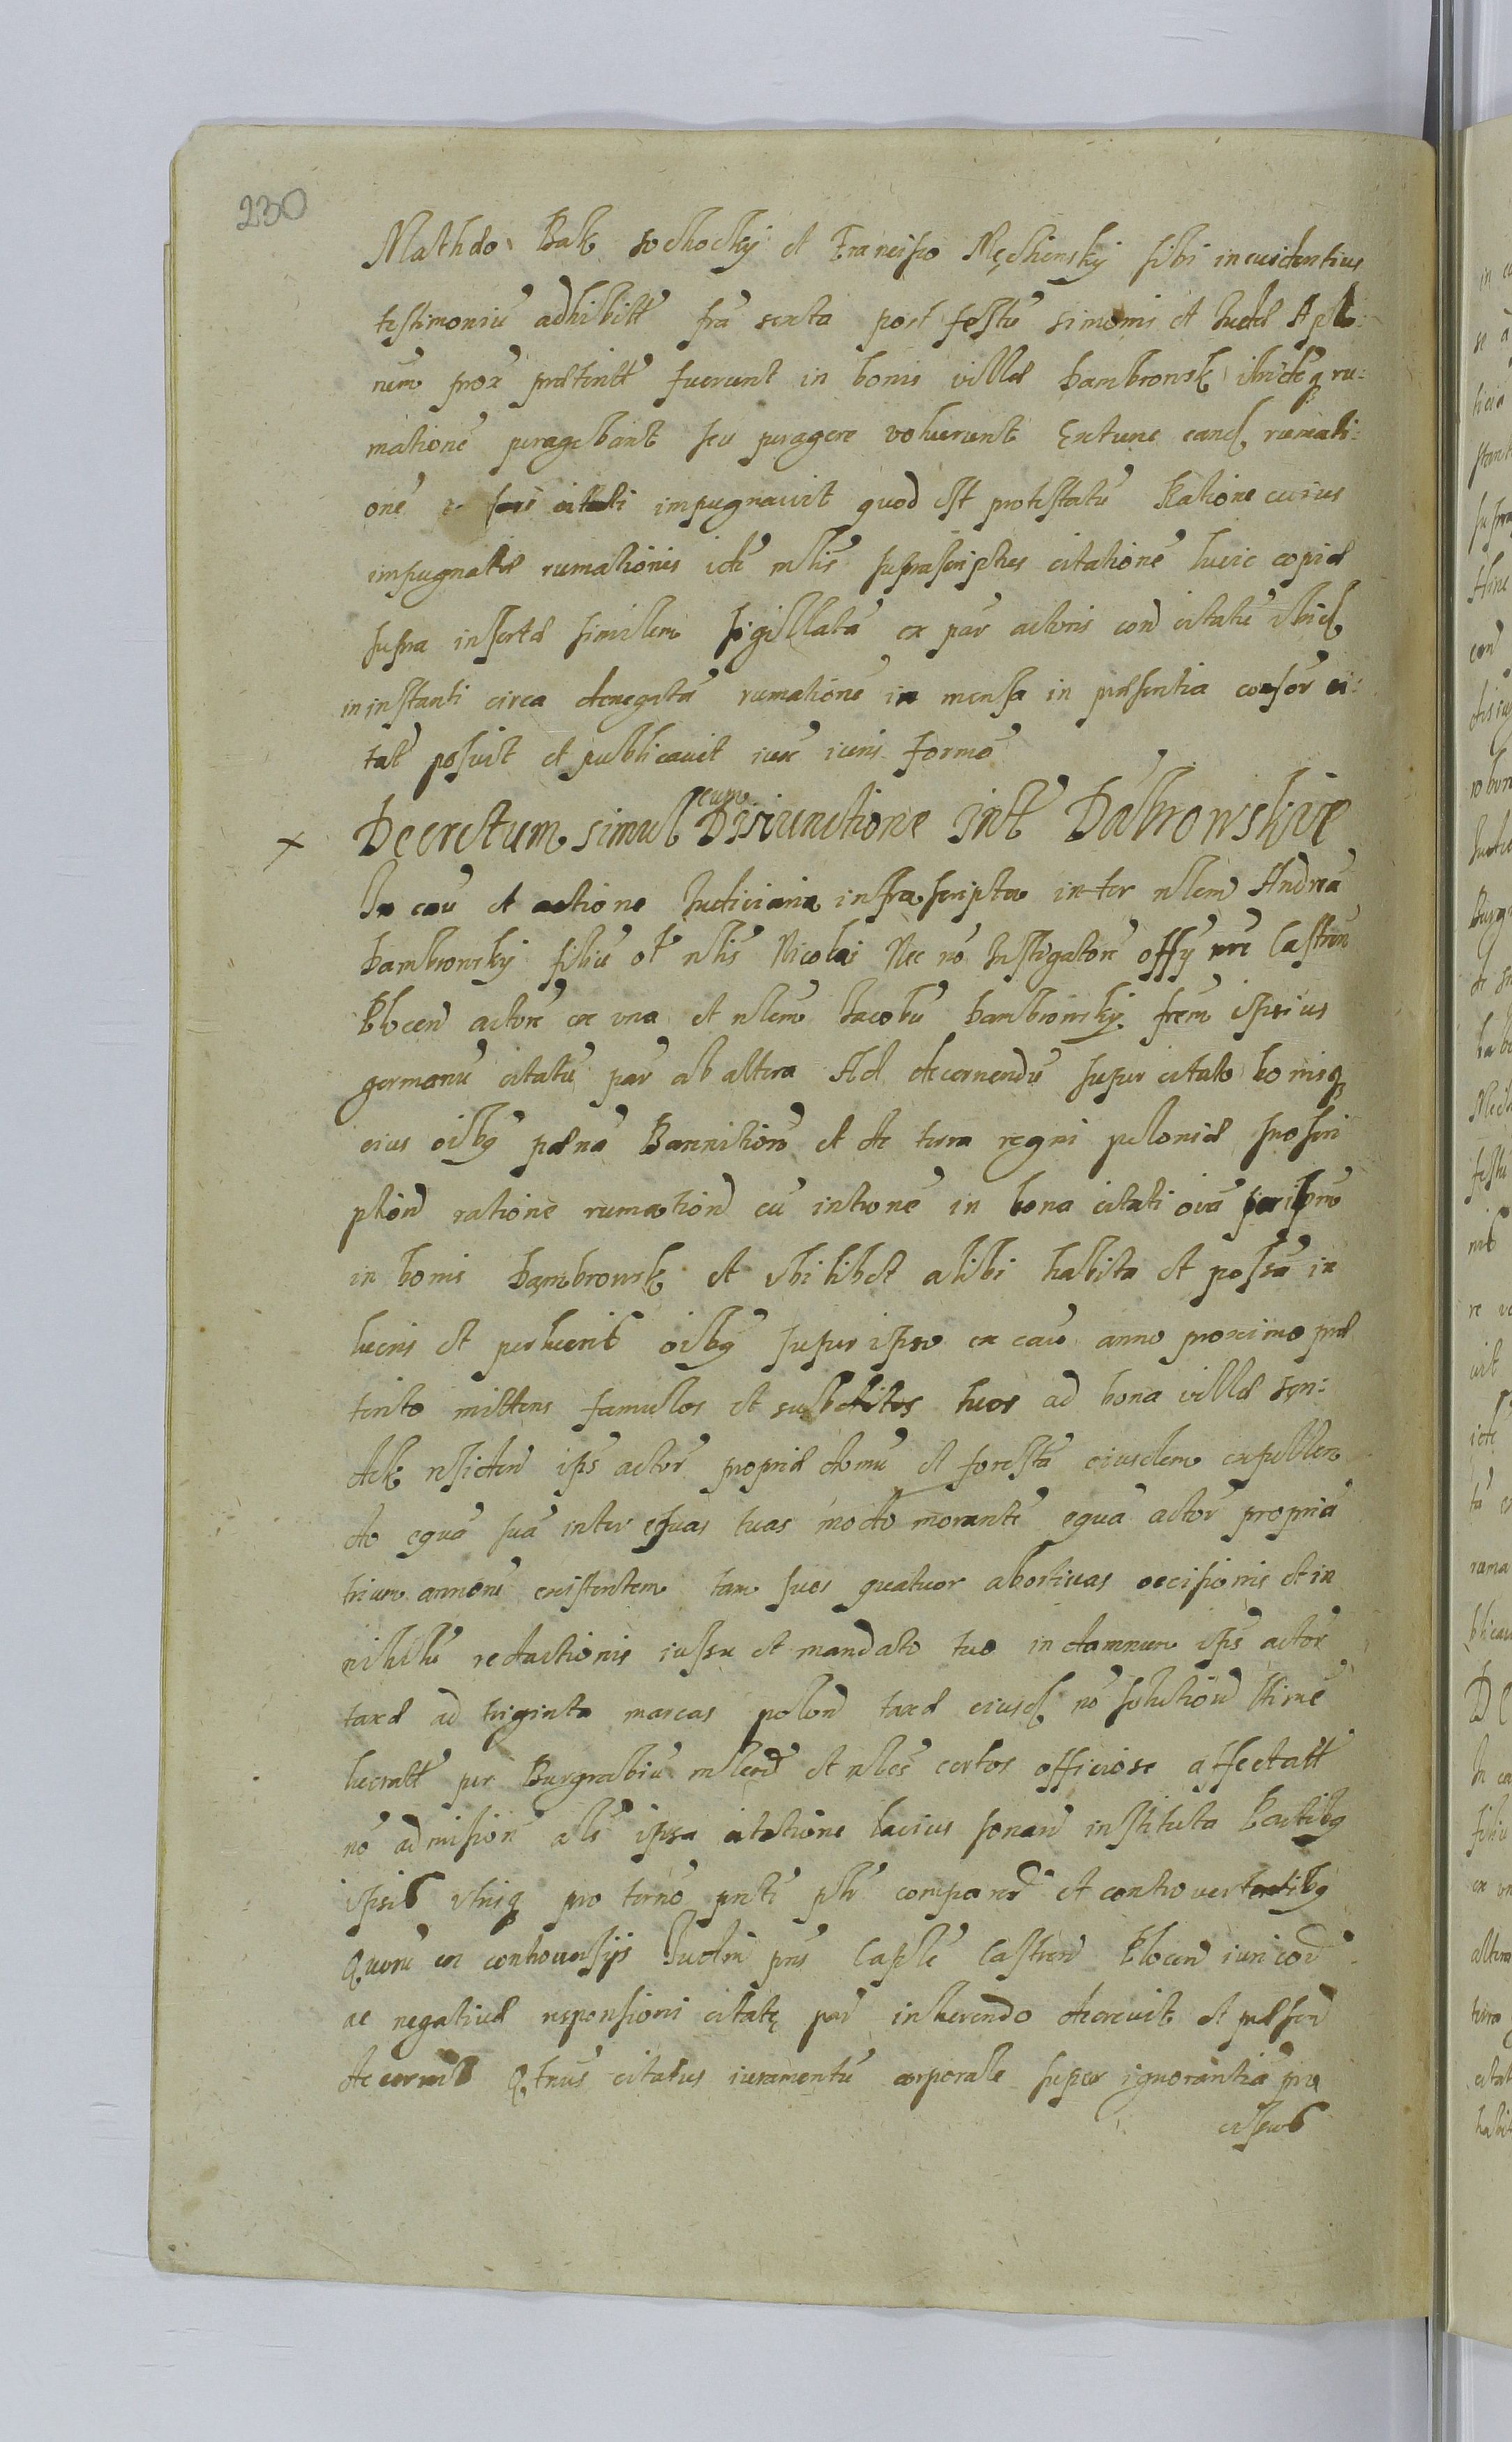 230
Mathdo Bak sochocky et Francisco Męchinsky sibi in euidentius
testimoniu adhibitt fra sexta post festu simonis et Iudæ Aplo:
rum prox præteritt fuerunt in bonis villæ Dambrowsk ibideq ru:
matione peragebant seu peragere voluerunt Extunc eand rumati:
one citati impugnauit quod est protestatu Ratione cuius
impugnatæ rumationis ide nlis suprascriptus citatione huic copiæ
supra insertæ similem sigillata ex par actoris con citatu ibid
in instanti circa denegata rumatione in mensa in præsentia consor ci:
tat posuit et publicauit iux iuris forma
x Decretum simul cum Disiunctione Intt Dąbrowskie
In cau et actione Iudiciaria infrascripta inter nlem Andrea
Dambrowsky filiu ol nlis Nicolai Nec no Instigatore offy pre Castren
Plocen actore ex vna et nlem Iacobu Dambrowsky frem ipsius
germanu citatu par ab altera Ad decernendu super citato bonisq
eius oibq pæna Bannitioni et de terra regni poloniæ proscri
ption ratione rumation cu intione in bona citati oia
in bonis Dambrowsk et vbilibet alibi habita et possa in
lucris et perlucris oibq super ipso ex cau anno proximo præ
terito mittens famulos et subditos tuos ad bona villæ Sen:
dek residen ips actor propriæ domu et foresta eiusdem expellen
do equa sua inter equas tuas modo morante equa actor propria
trium annoru existentem tam suos quatuor abortiuas occisionis et in
nihilu redactionis iussu et mandato tuo in damnum ips actor
taxæ ad triginta marcas polon taxæ eiusd no solution Hinc
lucratt per Burgrabiu nlem et nles certos officiose affectatt
no admission als ipsa citatione lacius sonan instituta Partibq
ipsis vtrisq pro termo pnti plr comparen et controuertentibq
Quoru ex controuersijs Iudm pns Caple Castren Plocen iuri cor
ac negatiuæ responsioni citatę par inherendo decreuit et præsen
decernit Qtnus citatus iuramentu corporale super ignorantia pre